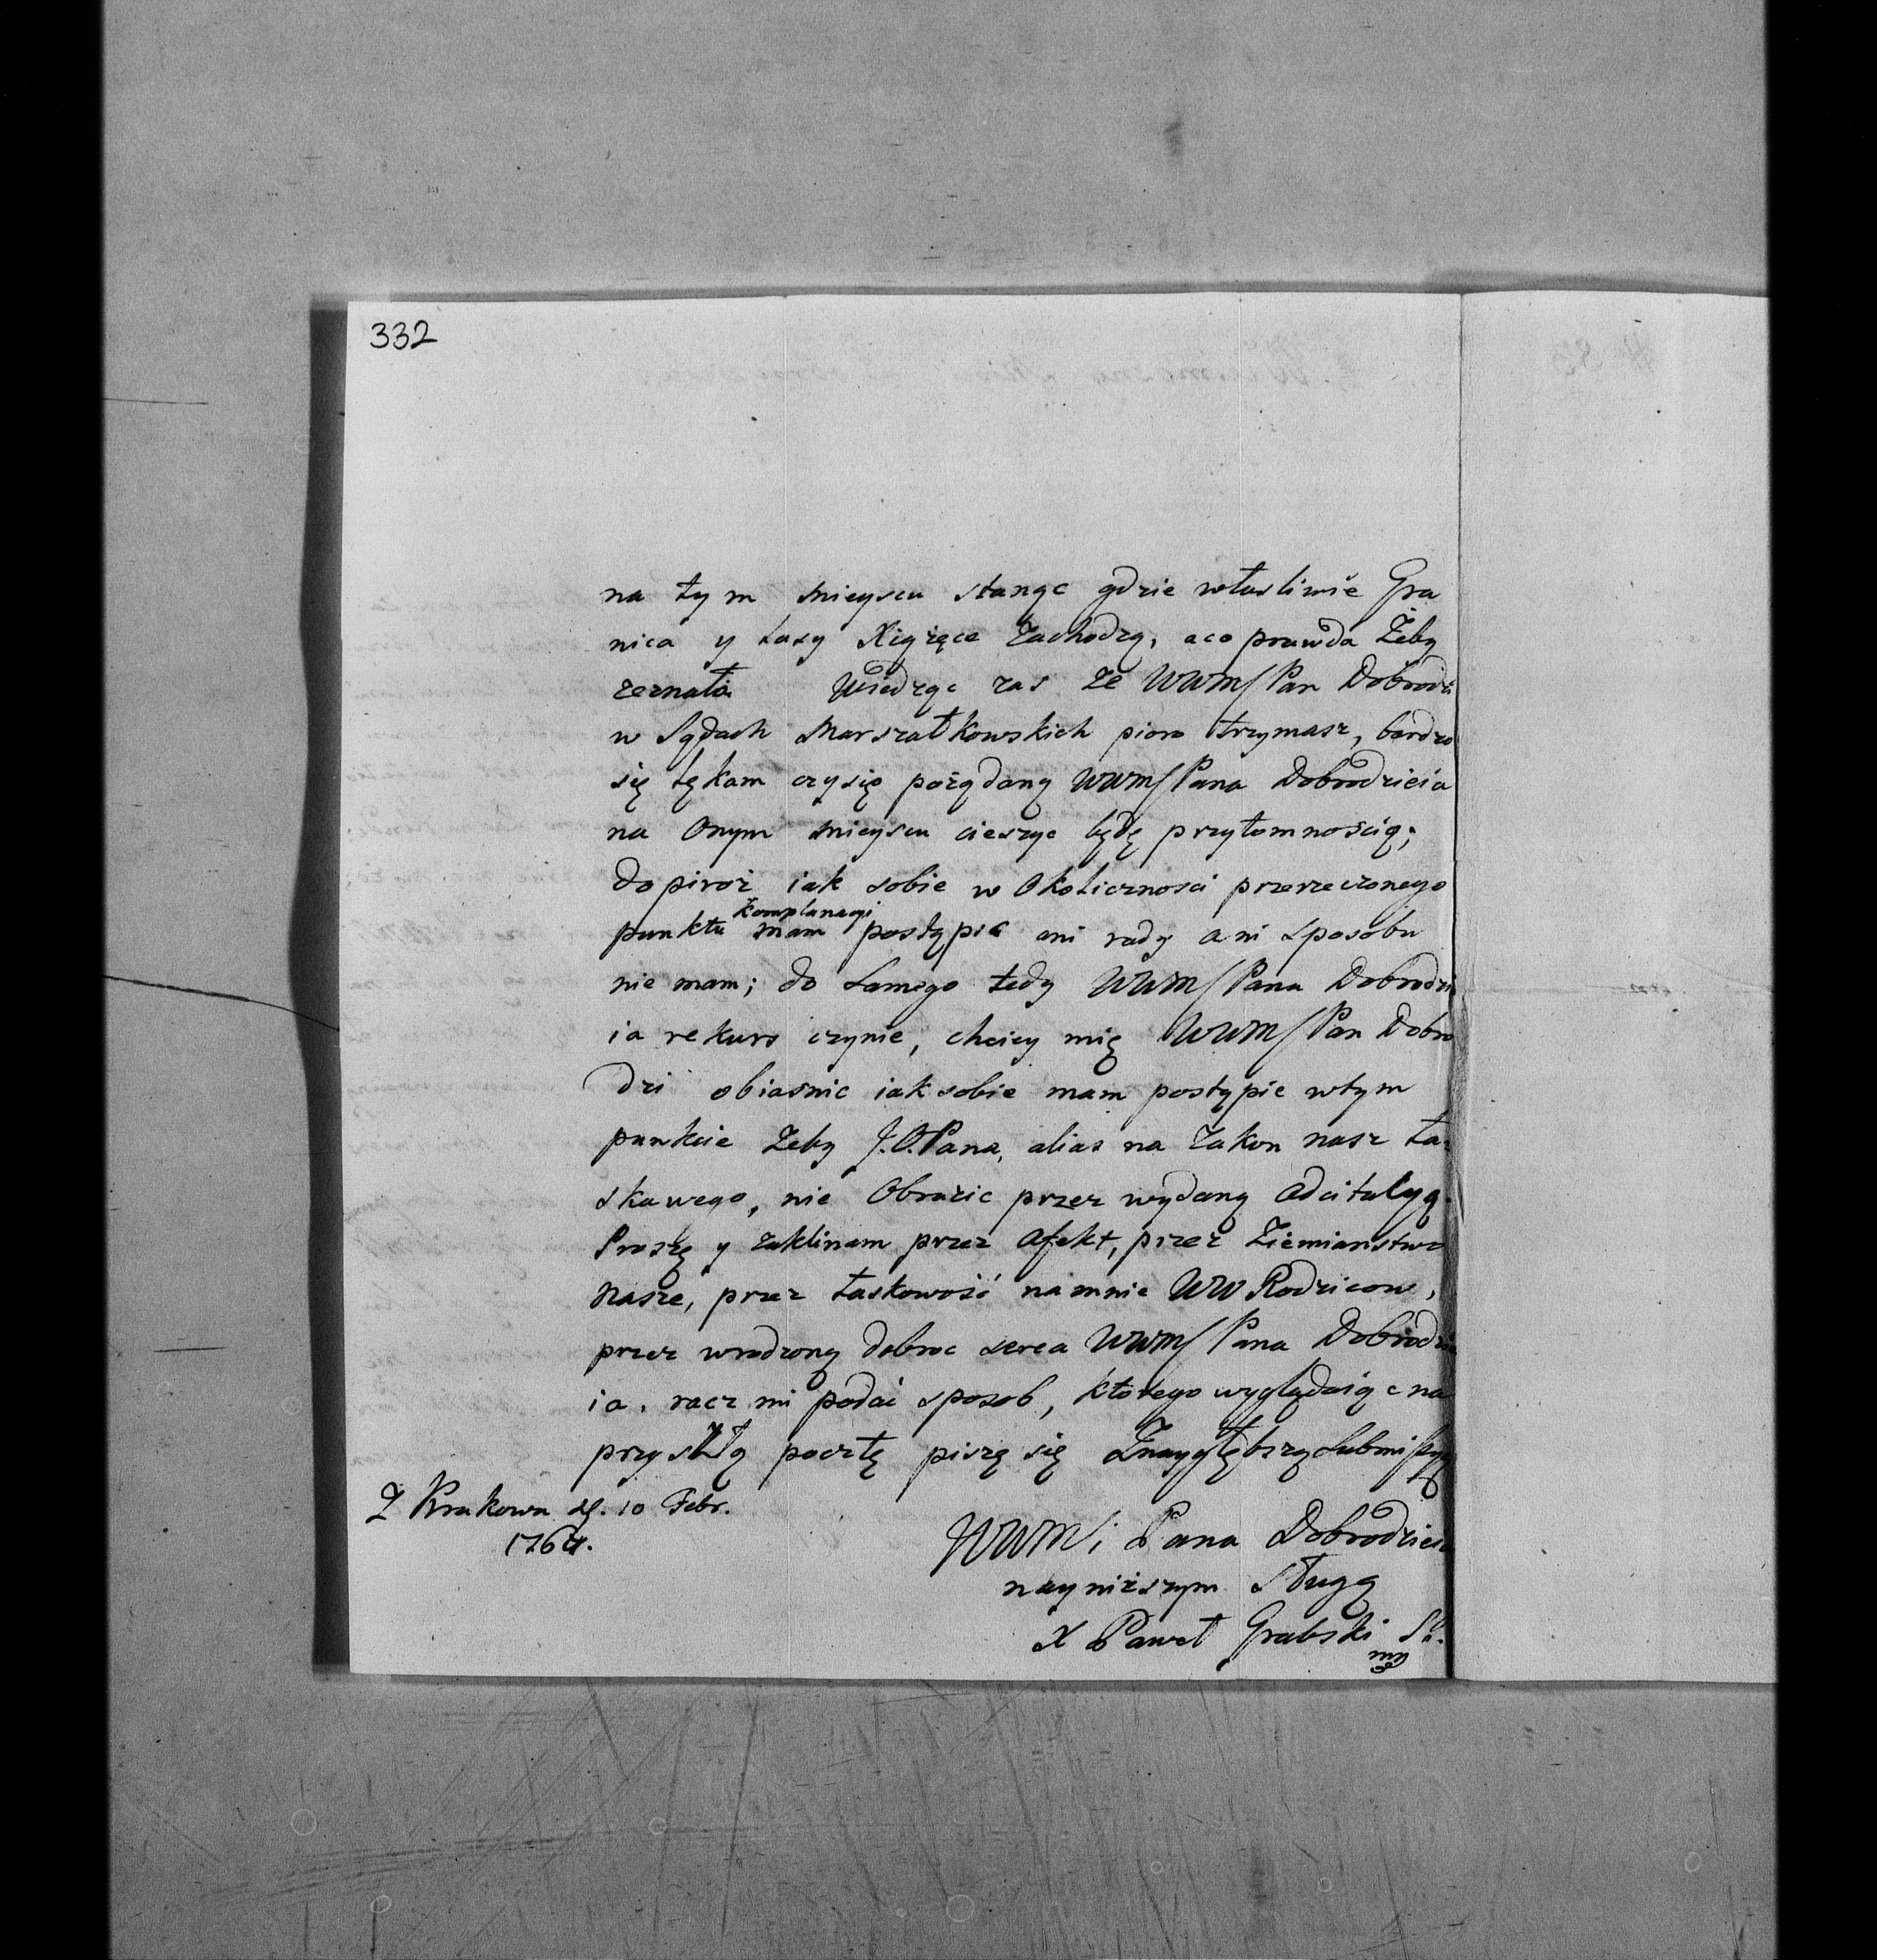 332
na tym mieyscu stanąc gdzie własliwie Gra
nica y Lasy Xiążęce Zachodzą, aco prawda Zeby
zeznała Wiedząc zas ze WWM Pan Dobrodzi
w Sądach Marszałkowskich pioro trzymasz, bardzo
się lękam czysię pożądaną WWM Pana Dobrodzieia
na Onym mieyscu cieszyc będę przytomnością;
dopiroż iak sobie w Okolicznosci przerzeczonego
punktu komplanacyi mam postąpic ani rady ani sposobu
nie mam; do samego tedy WWM Pana Dobrodzi
ia rekurs czynie, chciey mię WWM Pan Dobro
dzi obiasnic iak sobie mam postąpic wtym
punkcie Zeby J.O.Pana, alias na Zakon nasz ła
skawego, nie Obrazic przez wydaną adcitacyą.
Proszę y zaklinam przez afekt, przez Ziemianstwo
nasze, przez łaskowość namnie WW Rodzicow,
przez wrodzoną dobroc serca WWM Pana Dobrodzie
ia, racz mi podać sposob, ktorego wyglądaiąc na
przyszłą pocztę piszę się Znaygłębszą submissyą
Z Krakowa d. 10 Febr.
1764.
WWMi Pana Dobrodzieia
nayniższym sługą
X Paweł Grabski
mp